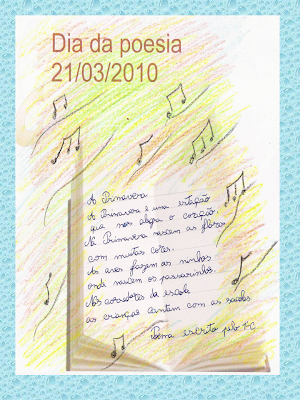 Dia da poesia
21/03/2010
A Primavera
A Primavera é uma estação
que nos alegra o coração.
Na Primavera nascem as flores
com muitas cores.
As aves fazem os ninhos
onde nascem os passarinhos.
Nos corredores da escola
as crianças cantam com as
Poema escrito pelo 1ºC